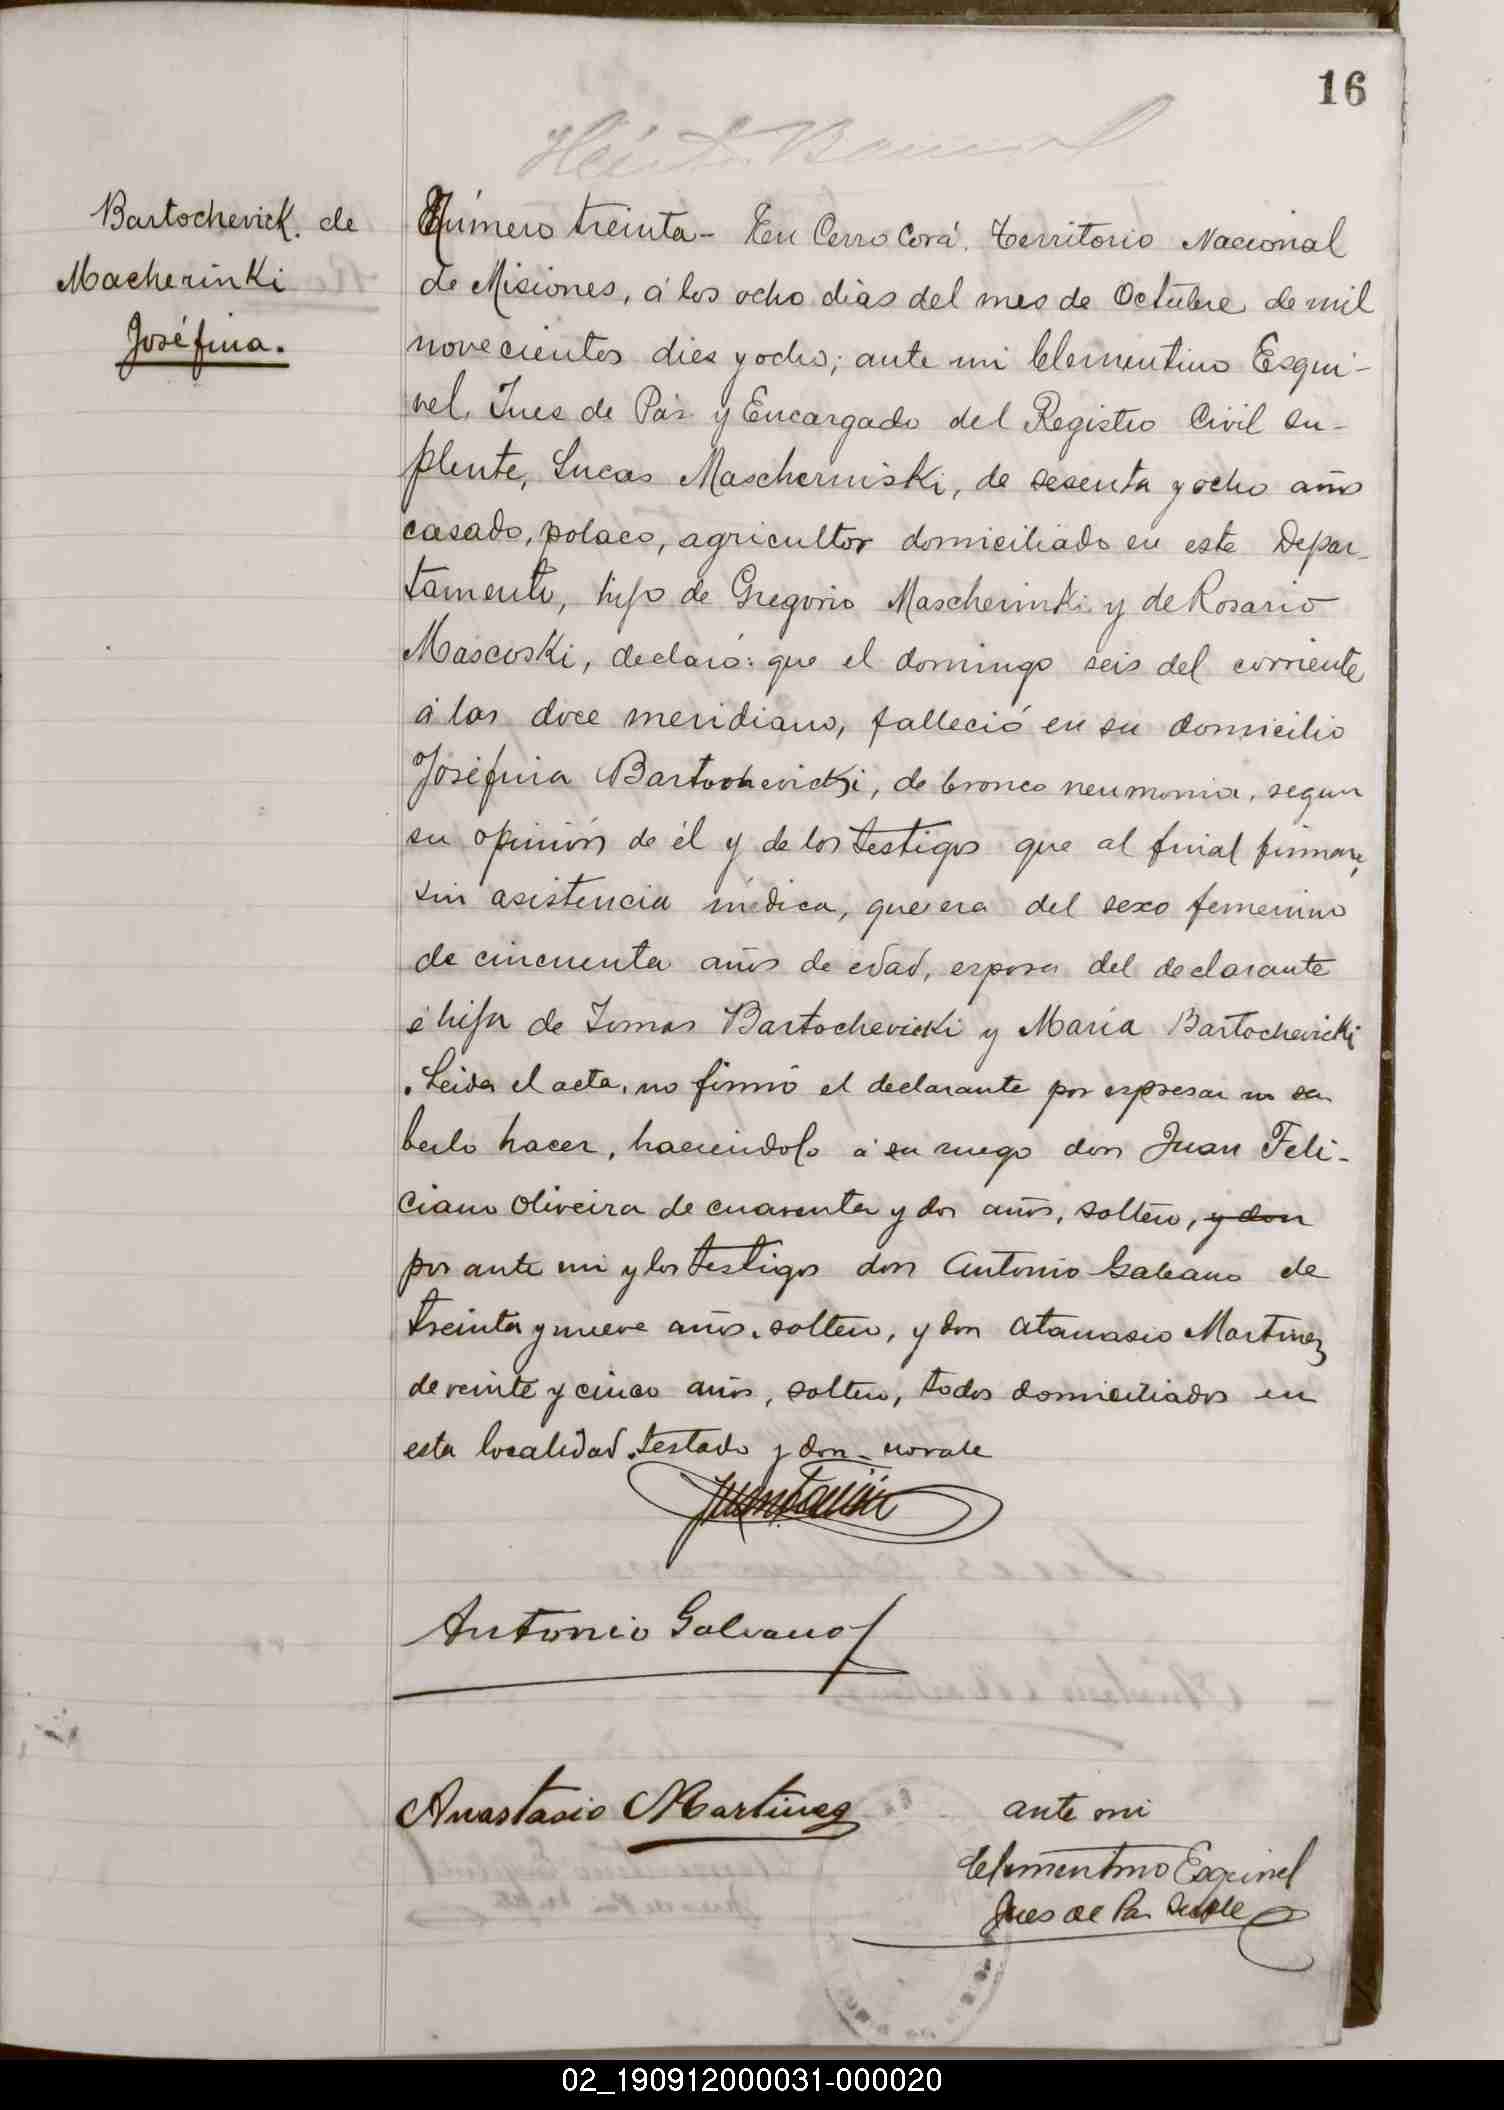 16
Bartochevick. de
Macherinki
Joséfina.
Número treinta - En Cerro Corá. Territorio Nacional
de Misiones, á los ocho dias del mes de Octubre de mil
novecientos dies y ocho; ante mi Clementino Esqui-
vel, Jues de Pás y Encargado del Registro Civil su-
plente, Lucas Mascherniski, de sesenta y ocho años
casado, polaco, agricultor domiciliado en este Depar-
tamento, hijo de Gregorio Mascherinski y de Rosario
Mascoski, declaró: que el domingo seis del corriente
á las doce meridiano, falleció en su domicilio
Joséfina Bartochevicki, de bronco neumonia, segun
su opinión de él y de los testigos que al final firman,
sin asistencia médica, que era del sexo femenino
de cincuenta años de edad, esposa del declarante
é hija de Tomas Bartochevicki y María Bartochevicki
. Leida el acta, no firmó el declarante por espresar no sa
berlo hacer, haciendolo á su ruego don Juan Feli-
ciano Oliveira de cuarenta y dos años, soltero, y don
por ante mi y los testigos don Antonio Galeano de
treinta y nueve años, soltero, y don Atanasio Martinez
de veinte y cinco años, soltero, todos domiciliados en
esta localidad. testado y don - no vale
Antonio Galeano
Anastacio Martinez
ante mi
Clementino Esquivel
Jues de Pas Suple
02_190912000031-000020